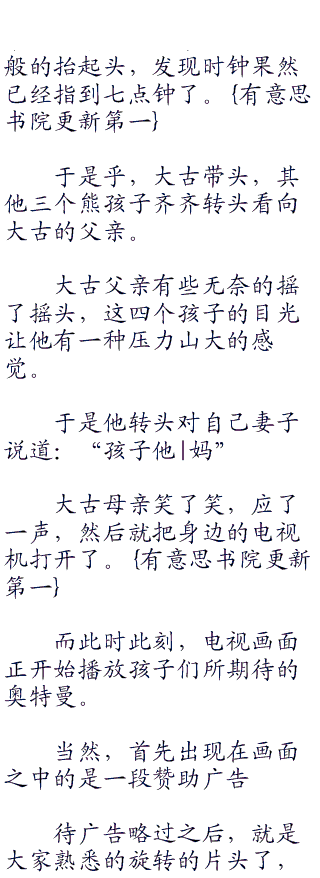 般的抬起头，发现时钟果然
已经指到七点钟了。{有意思
书院更新第一}
于是乎，大古带头，其
他三个熊孩子齐齐转头看向
大古的父亲。
大古父亲有些无奈的摇
了摇头，这四个孩子的目光
让他有一种压力山大的感
觉。
于是他转头对自己妻子
说道：“孩子他|妈”
大古母亲笑了笑，应了
一声，然后就把身边的电视
机打开了。{有意思书院更新
第一}
而此时此刻，电视画面
正开始播放孩子们所期待的
奥特曼。
当然，首先出现在画面
之中的是一段赞助广告
待广告略过之后，就是
大家熟悉的旋转的片头了，